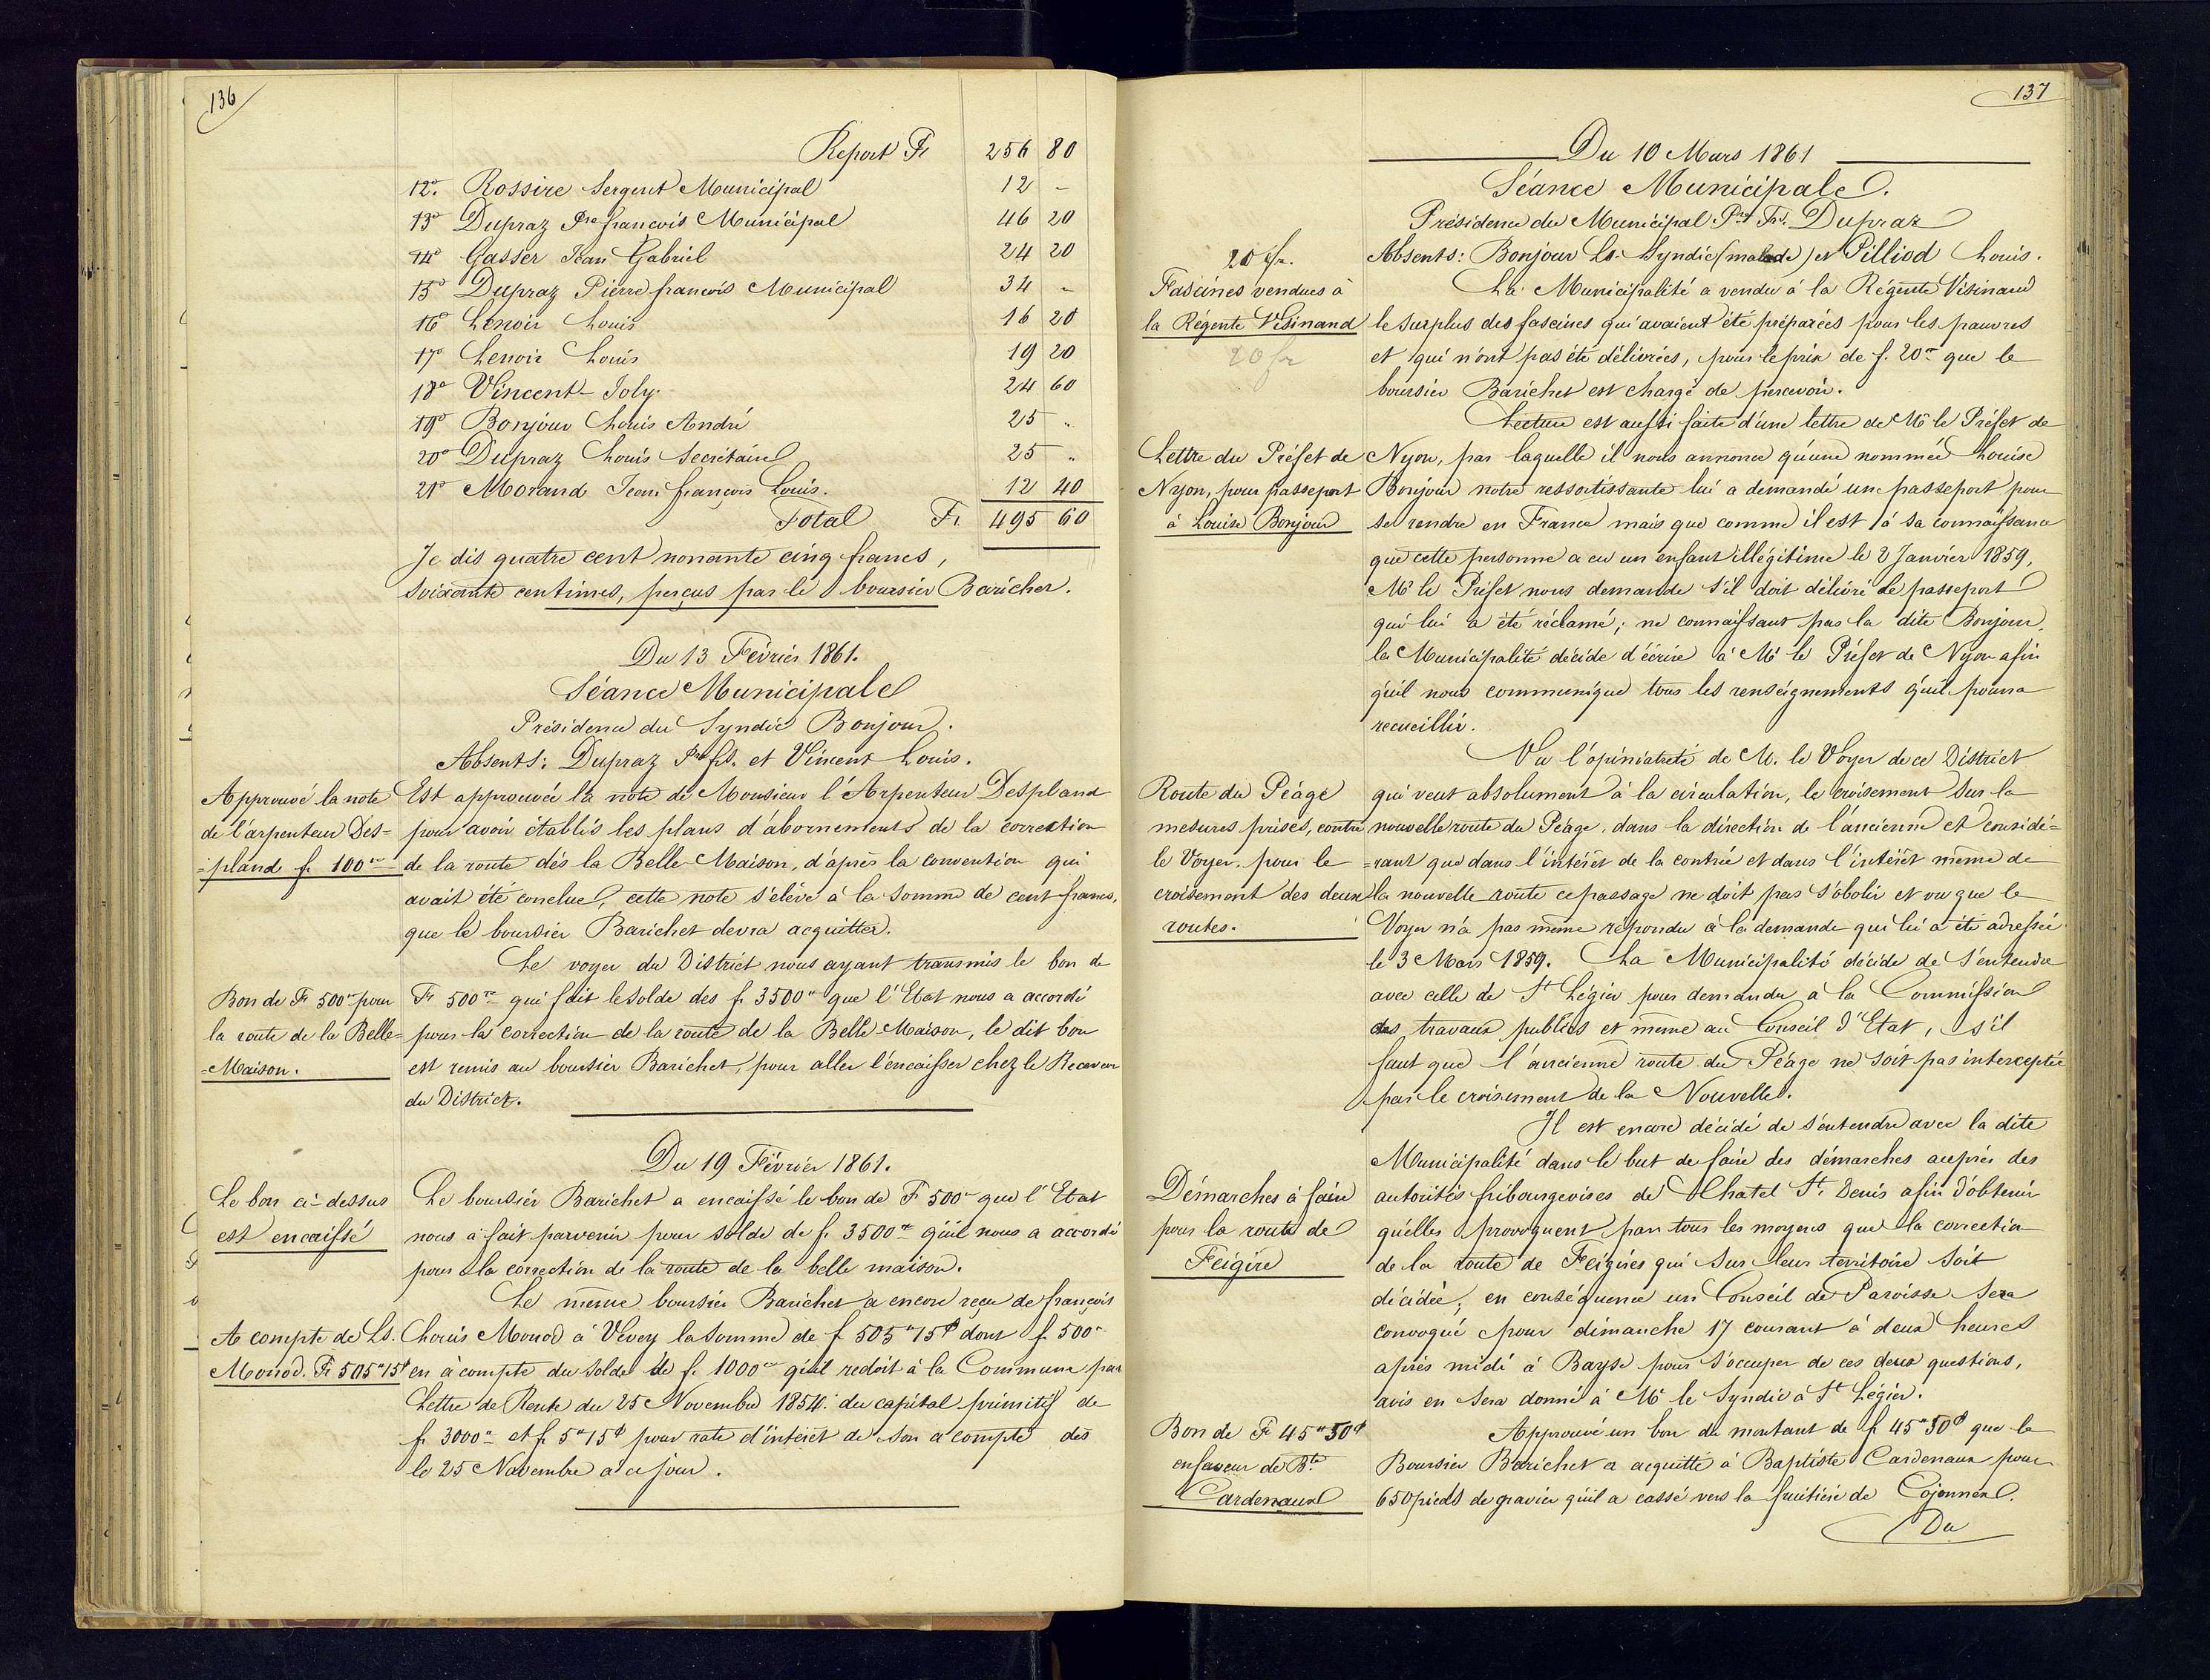 136
Report Fr 256 80
12° Rossire Sergent Municipal 12 –
13° Dupraz Pre françois Municipal 46 20
14° Gasser Jean Gabriel 24 20
15° Dupraz Pierre françois Municipal 34 –
16° Lenoir Louis 16 20
17° Lenoir Louis 19 20
18° Vincent-Joly. 24 60
19° Bonjour Louis André 25 "
20° Dupraz Louis Secrétaire 25 "
21° Morand Jean françois Louis. 12 40
Total Fr. 495 60
Je dis quatre cent nonante cinq francs,
soixante centimes, perçus par le boursier Barichet.
Du 13 Février 1861.
Séance Municipale
Présidence du Syndic Bonjour.
Absents: Dupraz Pre fs. et Vincent Louis.
Approuvé la note
de l'arpenteur Des=
=pland f. 100"
Est approuvée la note de Monsieur l'Arpenteur Despland
pour avoir établis les plans d'abornements de la correction
de la route dès la Belle-Maison, d'après la convention qui
avait été conclue, cette note s'élève à la somme de cent francs,
que le boursier Barichet devra acquitter.
Bon de Fr 500" pour
la route de la Belle=
=Maison.
Le voyer du District nous ayant transmis le bon de
Fr 500" qui fait le solde des f. 3500" que l'Etat nous a accordé
pour la correction de la route de la Belle-Maison, le dit bon
est remis au boursier Barichet, pour aller l'encaisser chez le Receveur
du District.
Du 19 Février 1861.
Le bon ci-dessus
est encaissé
Le boursier Barichet a encaissé le bon de F 500" que l'Etat
nous à fait parvenir pour solde de f. 3500" qu'il nous a accordé
pour la correction de la route de la belle maison.
A compte de Ls.
Monod. Fr 505"15
Le même boursier Barichet a encore reçu de françois
Louis Monod à Vevey la somme de f 505"15 dont f. 500"
en à compte du solde de f. 1000" qu'il redoit à la Commune par
Lettre de Rente du 25 Novembre 1854. du capital primitif de
f. 3000" et f. 5"15 pour rate d'intérêt de son a compte dès
le 25 Novembre a ce jour.
137
Du 10 Mars 1861
Séance Municipale.
Présidence du Municipal Pre Fs. Dupraz
Absents: Bonjour Ls. Syndic (malade) et Pilliod Louis.
20 fr.
Fascines vendues à
la Régente Visinand
20 fr
La Municipalité a vendu à la Régente Visinand
le surplus des fascines qui avaient été préparées pour les pauvres
et qui n'ont pas été délivrées, pour le prix de f. 20" que le
boursier Barichet est chargé de percevoir.
Lettre du Préfet de
Nyon, pour passeport
à Louise Bonjour
Lecture est aussi faite d'une lettre de Mr le Préfet de
Nyon, par laquelle il nous annonce qu'une nommée Louise
Bonjour notre ressortissante lui a demandé un passeport pour
se rendre en France mais que comme il est à sa connaissance
que cette personne a eu un enfant illégitime le 2 Janvier 1859,
Mr le Préfet nous demande s'il doit délivré le passeport
qui lui a été réclamé; ne connaissant pas la dite Bonjour,
la Municipalité décide d'écrire à Mr le Préfet de Nyon afin
qu'il nous communique tous les renseignements qu'il pourra
recueillir.
Route du Péage
mesures prises, contre
le Voyer. pour le
croisement des deux
routes.
Vu l'opiniatreté de M. le Voyer de ce District
qui veut absolument à la circulation, le croisement sur la
nouvelle route du Péage. dans la direction de l'ancienne et considé=
=rant que dans l'intérêt de la contrée et dans l'intérêt même de
la nouvelle route ce passage ne doit pas s'obolir et vu que le
Voyer n'a pas même répondu à la demande qui lui a été adressée
le 3 Mars 1859. La Municipalité décide de s'entendre
avec celle de St Légier pour demander à la Commission
des travaux publics et même au Conseil d'Etat, s'il
faut que l'ancienne route du Péage ne soit pas interceptée
par le croisement de la Nouvelle.
Démarches à faire
pour la route de
Feigire
Il est encore décidé de s'entendre avec la dite
Municipalité dans le but de faire des démarches auprès des
autorités fribourgeoises de Chatel St. Denis afin d'obtenir
qu'elles provoquent par tous les moyens que la correction
de la route de Feigires qui sur leur territoire soit
décidée; en conséquence un Conseil de Paroisse sera
convoqué pour dimanche 17 courant à deux heures
après midi à Bayse pour s'occuper de ces deux questions,
avis en sera donné à Mr le Syndic à St Légier.
Bon de Fr 45"50
en faveur de Bte
Cardenaux
Approuvé un bon du montant de f. 45"50 que le
Boursier Barichet a acquitté à Baptiste Cardenaux pour
650 pieds de gravier qu'il a cassé vers la fruitière de Cojonnex.
Du